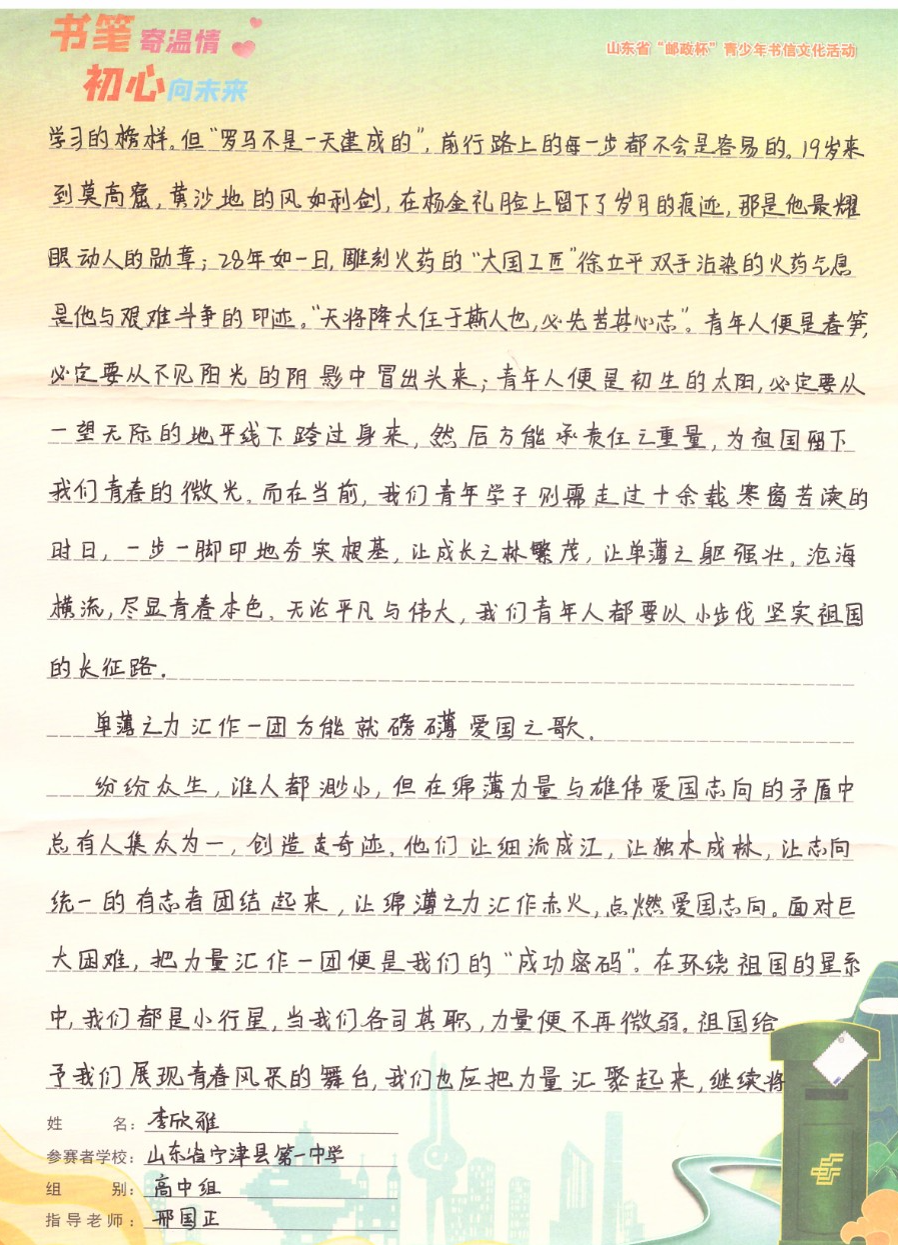 书笔寄温情
初心向未来
山东省“邮政杯”青少年书信文化活动
学习的榜样。但“罗马不是一天建成的”,前行路上的每一步都不会是容易的。19岁来
到莫高窟,黄沙地的风如利剑,在杨金礼脸上留下了岁月的痕迹,那是他最耀
眼动人的勋章;28年如一日,雕刻火药的“大国工匠”徐立平双手沾染的火药气息
是他与艰难斗争的印迹。“天将降大任于斯人也,必先苦其心志”。青年人便是春笋,
必定要从不见阳光的阴影中冒出头来;青年人便是初生的太阳,必定要从
一望无际的地平线下跨过身来,然后方能承责任之重量,为祖国留下
我们青春的微光。而在当前,我们青年学子则需走过十余载寒窗苦读的
时日,一步一脚印地夯实根基,让成长之林繁茂,让单薄之躯强壮。沧海
横流,尽显青春本色。无论平凡与伟大,我们青年人都要以小步伐坚实祖国
的长征路.
单薄之力汇作一团方能就磅礴爱国之歌.
纷纷众生,谁人都渺小,但在绵薄力量与雄伟爱国志向的矛盾中
总有人集众为一,创造走奇迹.他们让细流成江,让独木成林,让志向
统一的有志者团结起来,让绵薄之力汇作赤火,点燃爱国志向。面对巨
大困难,把力量汇作一团便是我们的“成功密码”。在环绕祖国的星系
中,我们都是小行星,当我们各司其职,力量便不再微弱.祖国给
予我们展现青春风采的舞台,我们也应把力量汇聚起来,继续将
姓名:李欣雅
参赛者学校:山东省宁津县第一中学
组别:高中组
指导老师:邢国正